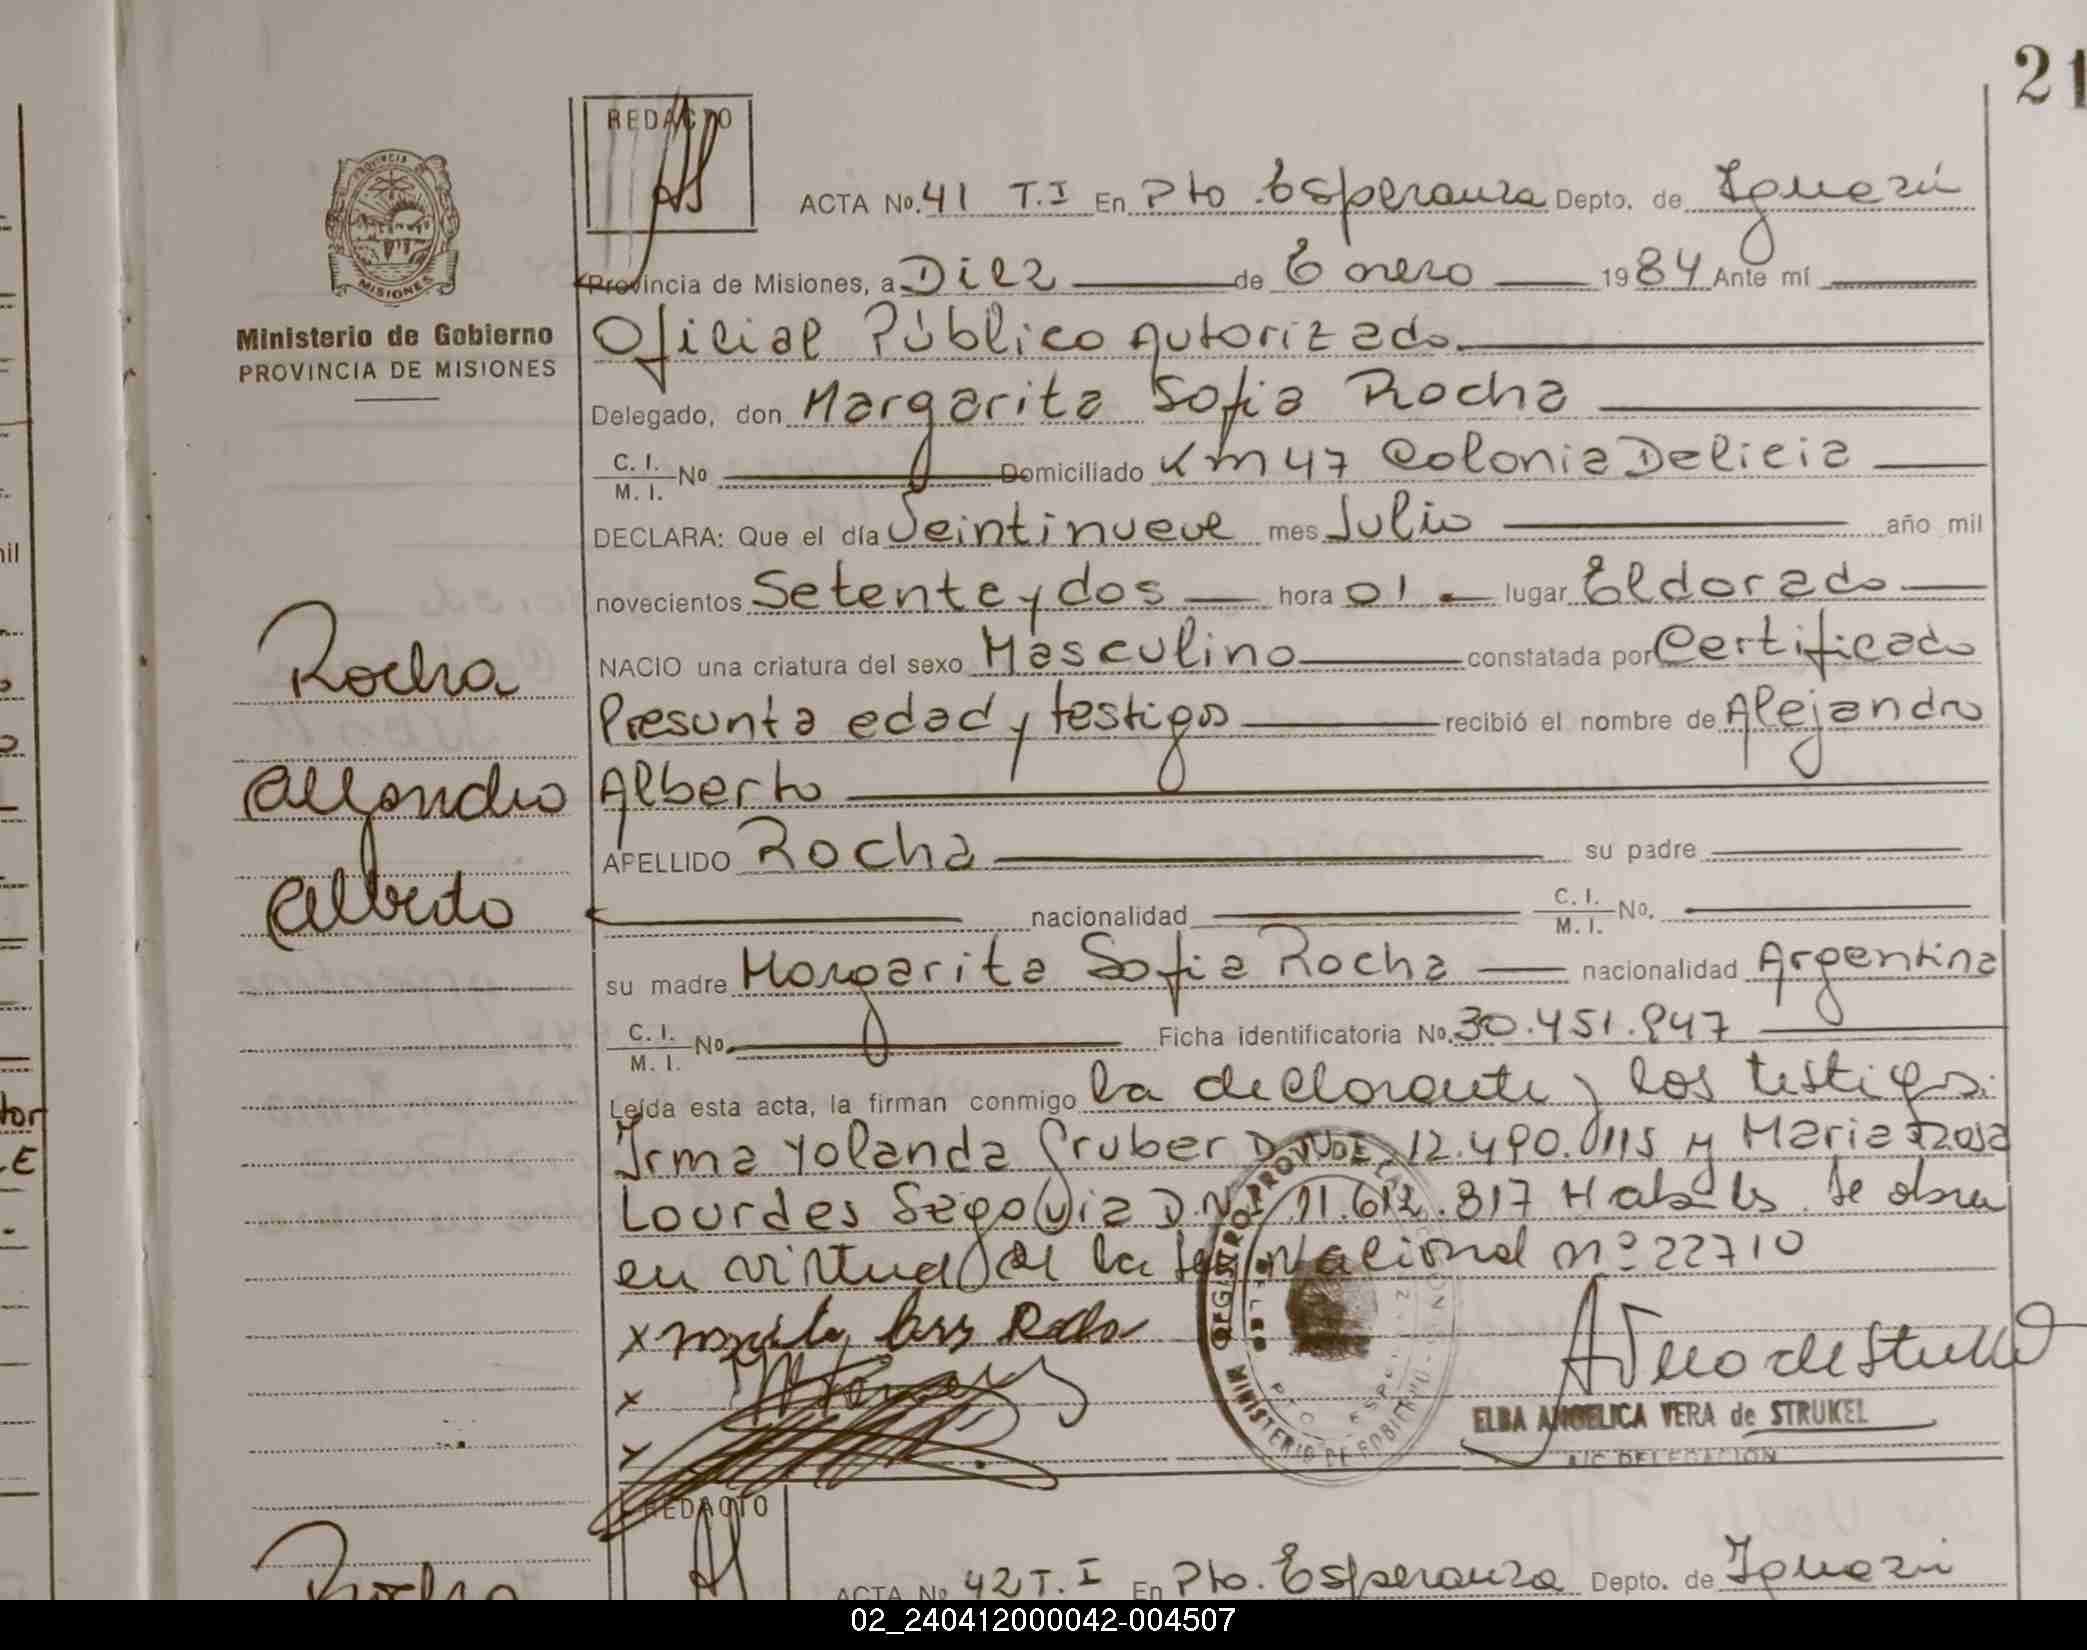 21
REDACTO
ACTA No. 41 T.I En Pto Esperanza Depto. de Iguazú
Provincia de Misiones, a Diez de Enero 1984 Ante mí
Ministerio de Gobierno
PROVINCIA DE MISIONES
Oficial Público Autorizado.
Delegado, don Margarita Sofia Rocha
C. I. M. I. No Domiciliado Km 47 Colonia Delicia
DECLARA: Que el día Veintinueve mes Julio año mil
novecientos Setenta y dos hora 01 lugar Eldorado
NACIO una criatura del sexo Masculino constatada por Certificado
Presunta edad y testigos recibió el nombre de Alejandro
Alberto
APELLIDO Rocha su padre
nacionalidad C. I. M. I. No.
su madre Margarita Sofia Rocha nacionalidad Argentina
C. I. M. I. No. Ficha identificatoria No. 30.451.947
Leída esta acta, la firman conmigo la declarante y los testigos:
Irma Yolanda Gruber 12.490. y Maria Rosa
Lourdes Segovia D.N.I 11.612.817 Habiles. Se obra
en virtud de la Ley Nacional nº 22710
Rocha
Alejandro
Alberto
ELBA ANGELICA VERA de STRUKEL
A/C DELEGACION
REDACTO
ACTA No 42 T. I En Pto. Esperanza Depto. de Iguazú
Rocha
02_240412000042-004507